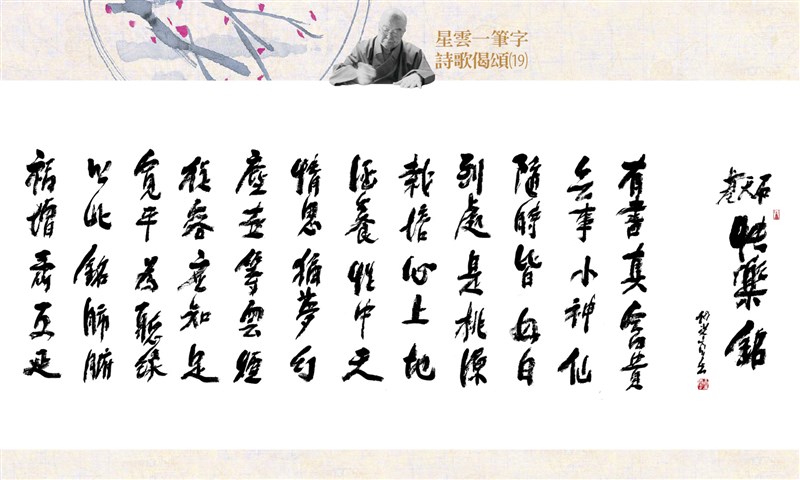 星雲一筆字
詩歌偈頌(19)
石天基
快樂銘
有書真富貴
無事小神仙
隨時皆好日
到處是桃源
栽培心上地
涵養性中天
情思猶夢幻
塵世等雲煙
容應知足
寬平為緣
以此銘肺腑
福增壽更延